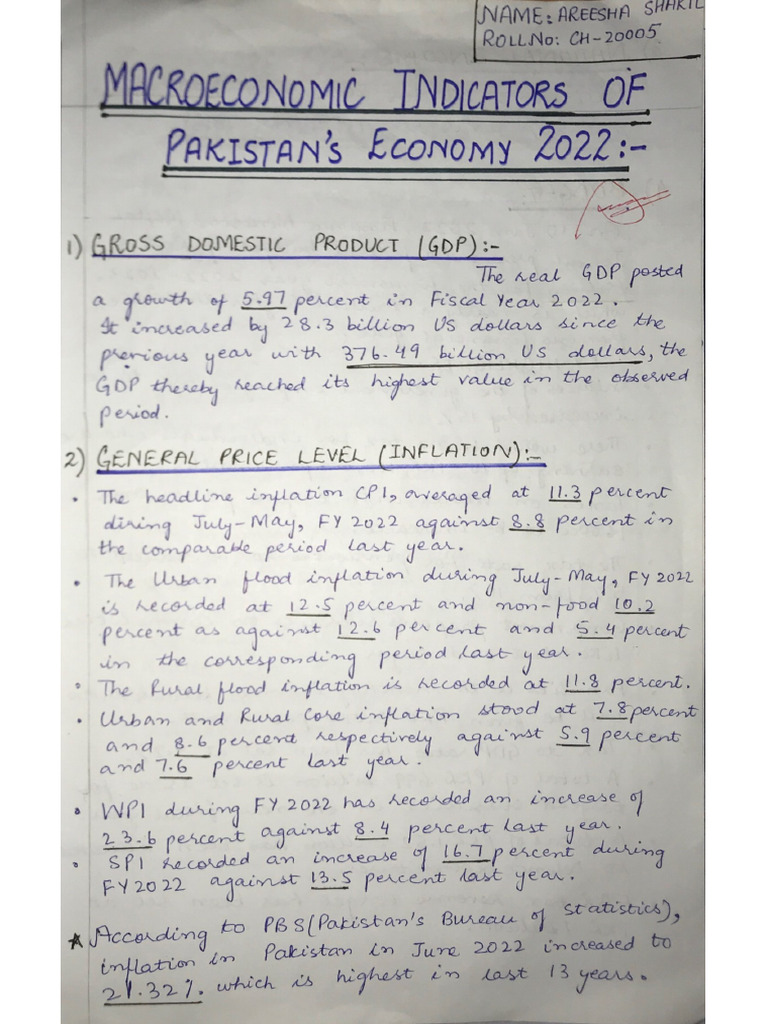 NAME: AREESHA SHAKIL
ROLLNO: CH-20005
MACROECONOMIC INDICATORS OF
PAKISTAN'S ECONOMY 2022:-
1) GROSS DOMESTIC PRODUCT (GDP):-
The real GDP posted
a growth of 5.97 percent in Fiscal Year 2022.
It increased by 28.3 billion US dollars since the
previous year with 376.49 billion US dollars, the
GDP thereby reached its highest value in the observed
period.
2) GENERAL PRICE LEVEL (INFLATION):-
• The headline inflation CPI, averaged at 11.3 percent
diring July-May, FY 2022 against 8.8 percent in
the comparable period last year.
• The Urban flood inflation during July-May, FY 2022
is recorded at 12.5 percent and non-food 10.2
percent as against 12.6 percent and 5.4 percent
in the corresponding period last year.
• The Rural flood inflation is recorded at 11.8 percent.
• Urban and Rural Core inflation stood at 7.8 percent
and 8.6 percent respectively against 5.9 percent
and 7.6 percent last year.
• WPI during FY 2022 has recorded an increase of
23.6 percent against 8.4 percent last year.
• SPI recorded an increase of 16.7 percent during
FY2022 against 13.5 percent last year.
★ According to PBS (Pakistan's Bureau of Statistics),
inflation in Pakistan in June 2022 increased to
21.32%. which is highest in last 13 years.